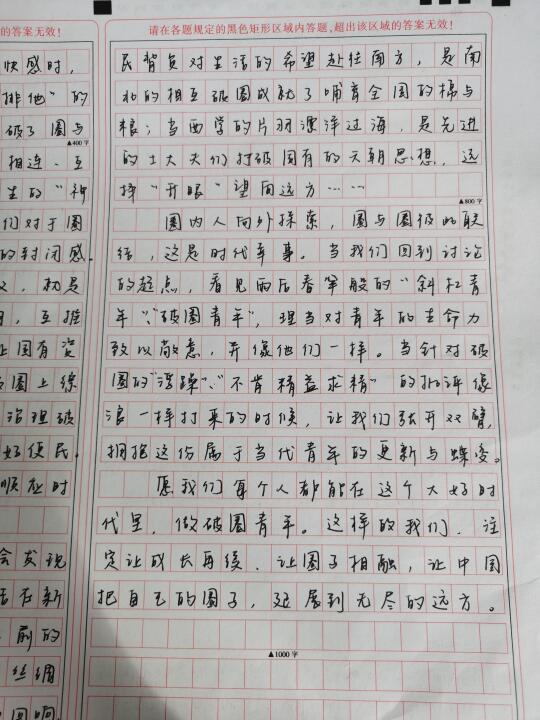 的答案无效！
快感时，
排他”的
破了圈与
▲400字
相连、互
生的“神
们对于圈
的封闭感。
义，就是
互推
固有资
圈上绦
治理破
好便民。
顺应时
会发现
活在新
前的
丝绸
请在各题规定的黑色矩形区域内答题，超出该区域的答案无效！
民背负对生活的希望赴往南方，是南
北的相互破圈成就了哺育全国的棉与
粮；当西学的片羽漂洋过海，是先进
的士大夫们打破固有的天朝思想，选
择“开眼”望向远方……
▲800字
圈内人向外探索，圈与圈彼此联
结，这是时代幸事。当我们回到讨论
的起点，看见雨后春笋般的“斜杠青
年”、“破圈青年”，理当对青年的生命力
致以敬意，并像他们一样。当针对破
圈的“浮躁”、“不肯精益求精”的批评像
浪一样打来的时候，让我们张开双臂，
拥抱这份属于当代青年的更新与蝶变。
愿我们每个人都能在这个大好时
代里，做破圈青年。这样的我们，注
定让成长再续、让圈子相融，让中国
把自己的圈子，延展到无尽的远方。
▲1000字